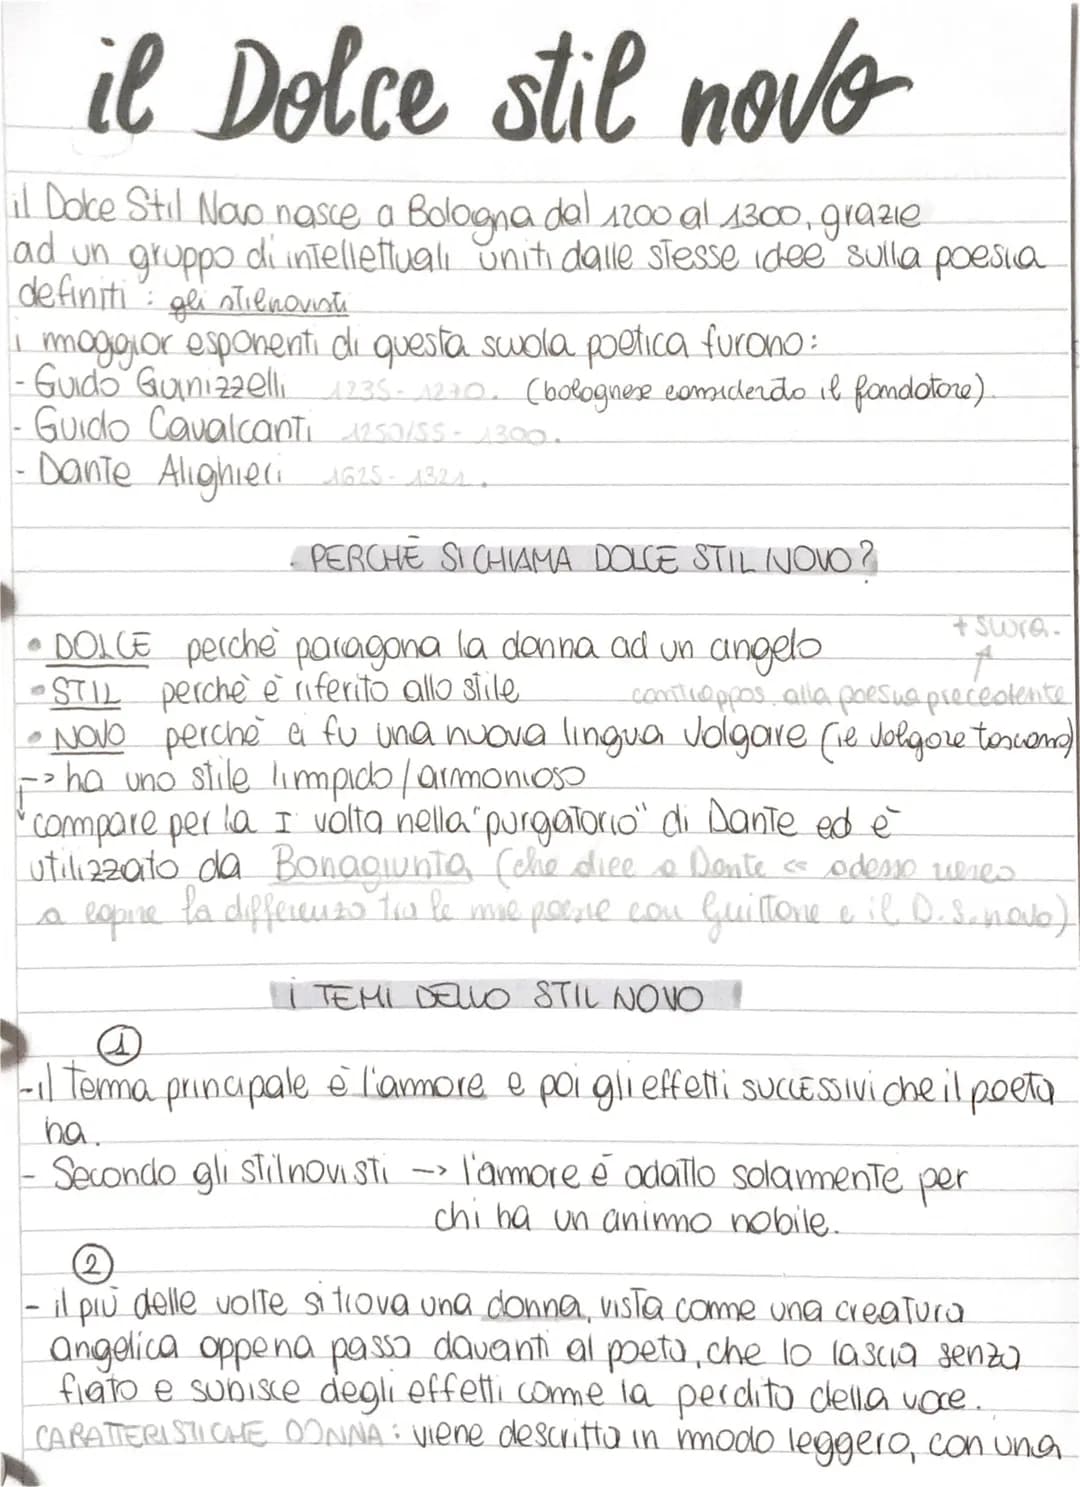 il Dolce stil novo
il Dolce Stil Novo nasce a Bologna dal 1200 al 1300, grazie
ad un gruppo di intellettuali uniti dalle stesse idee sulla poesia
definiti: gli stilnovisti
i maggior esponenti di questa scuola poetica furono:
- Guido Guinizzelli 1235-1270. (bolognese considerato il fondatore).
- Guido Cavalcanti 1250/55-1300.
- Dante Alighieri 1625-1321.
PERCHÈ SI CHIAMA DOLCE STIL NOVO?
+ scura.
• DOLCE perchè paragona la donna ad un angelo
• STIL perchè è riferito allo stile contrappos. alla poesia precedente
• NOVO perchè ci fu una nuova lingua volgare (il volgare toscano)
-> ha uno stile limpido/armonioso
compare per la I volta nella "purgatorio" di Dante ed è
utilizzato da Bonagiunta (che dice a Dante << adesso
a capire la differenza tra le mie poesie con Guittone e il D.S.novo)
i TEMI DELLO STIL NOVO
1
- il Tema principale è l'amore e poi gli effetti successivi che il poeta
ha.
- Secondo gli stilnovisti -> l'amore è adatto solamente per
chi ha un animo nobile.
2
- il più delle volte si trova una donna, vista come una creatura
angelica appena passa davanti al poeta, che lo lascia senza
fiato e subisce degli effetti come la perdita della voce.
CARATTERISTICHE DONNA: viene descritta in modo leggero, con una